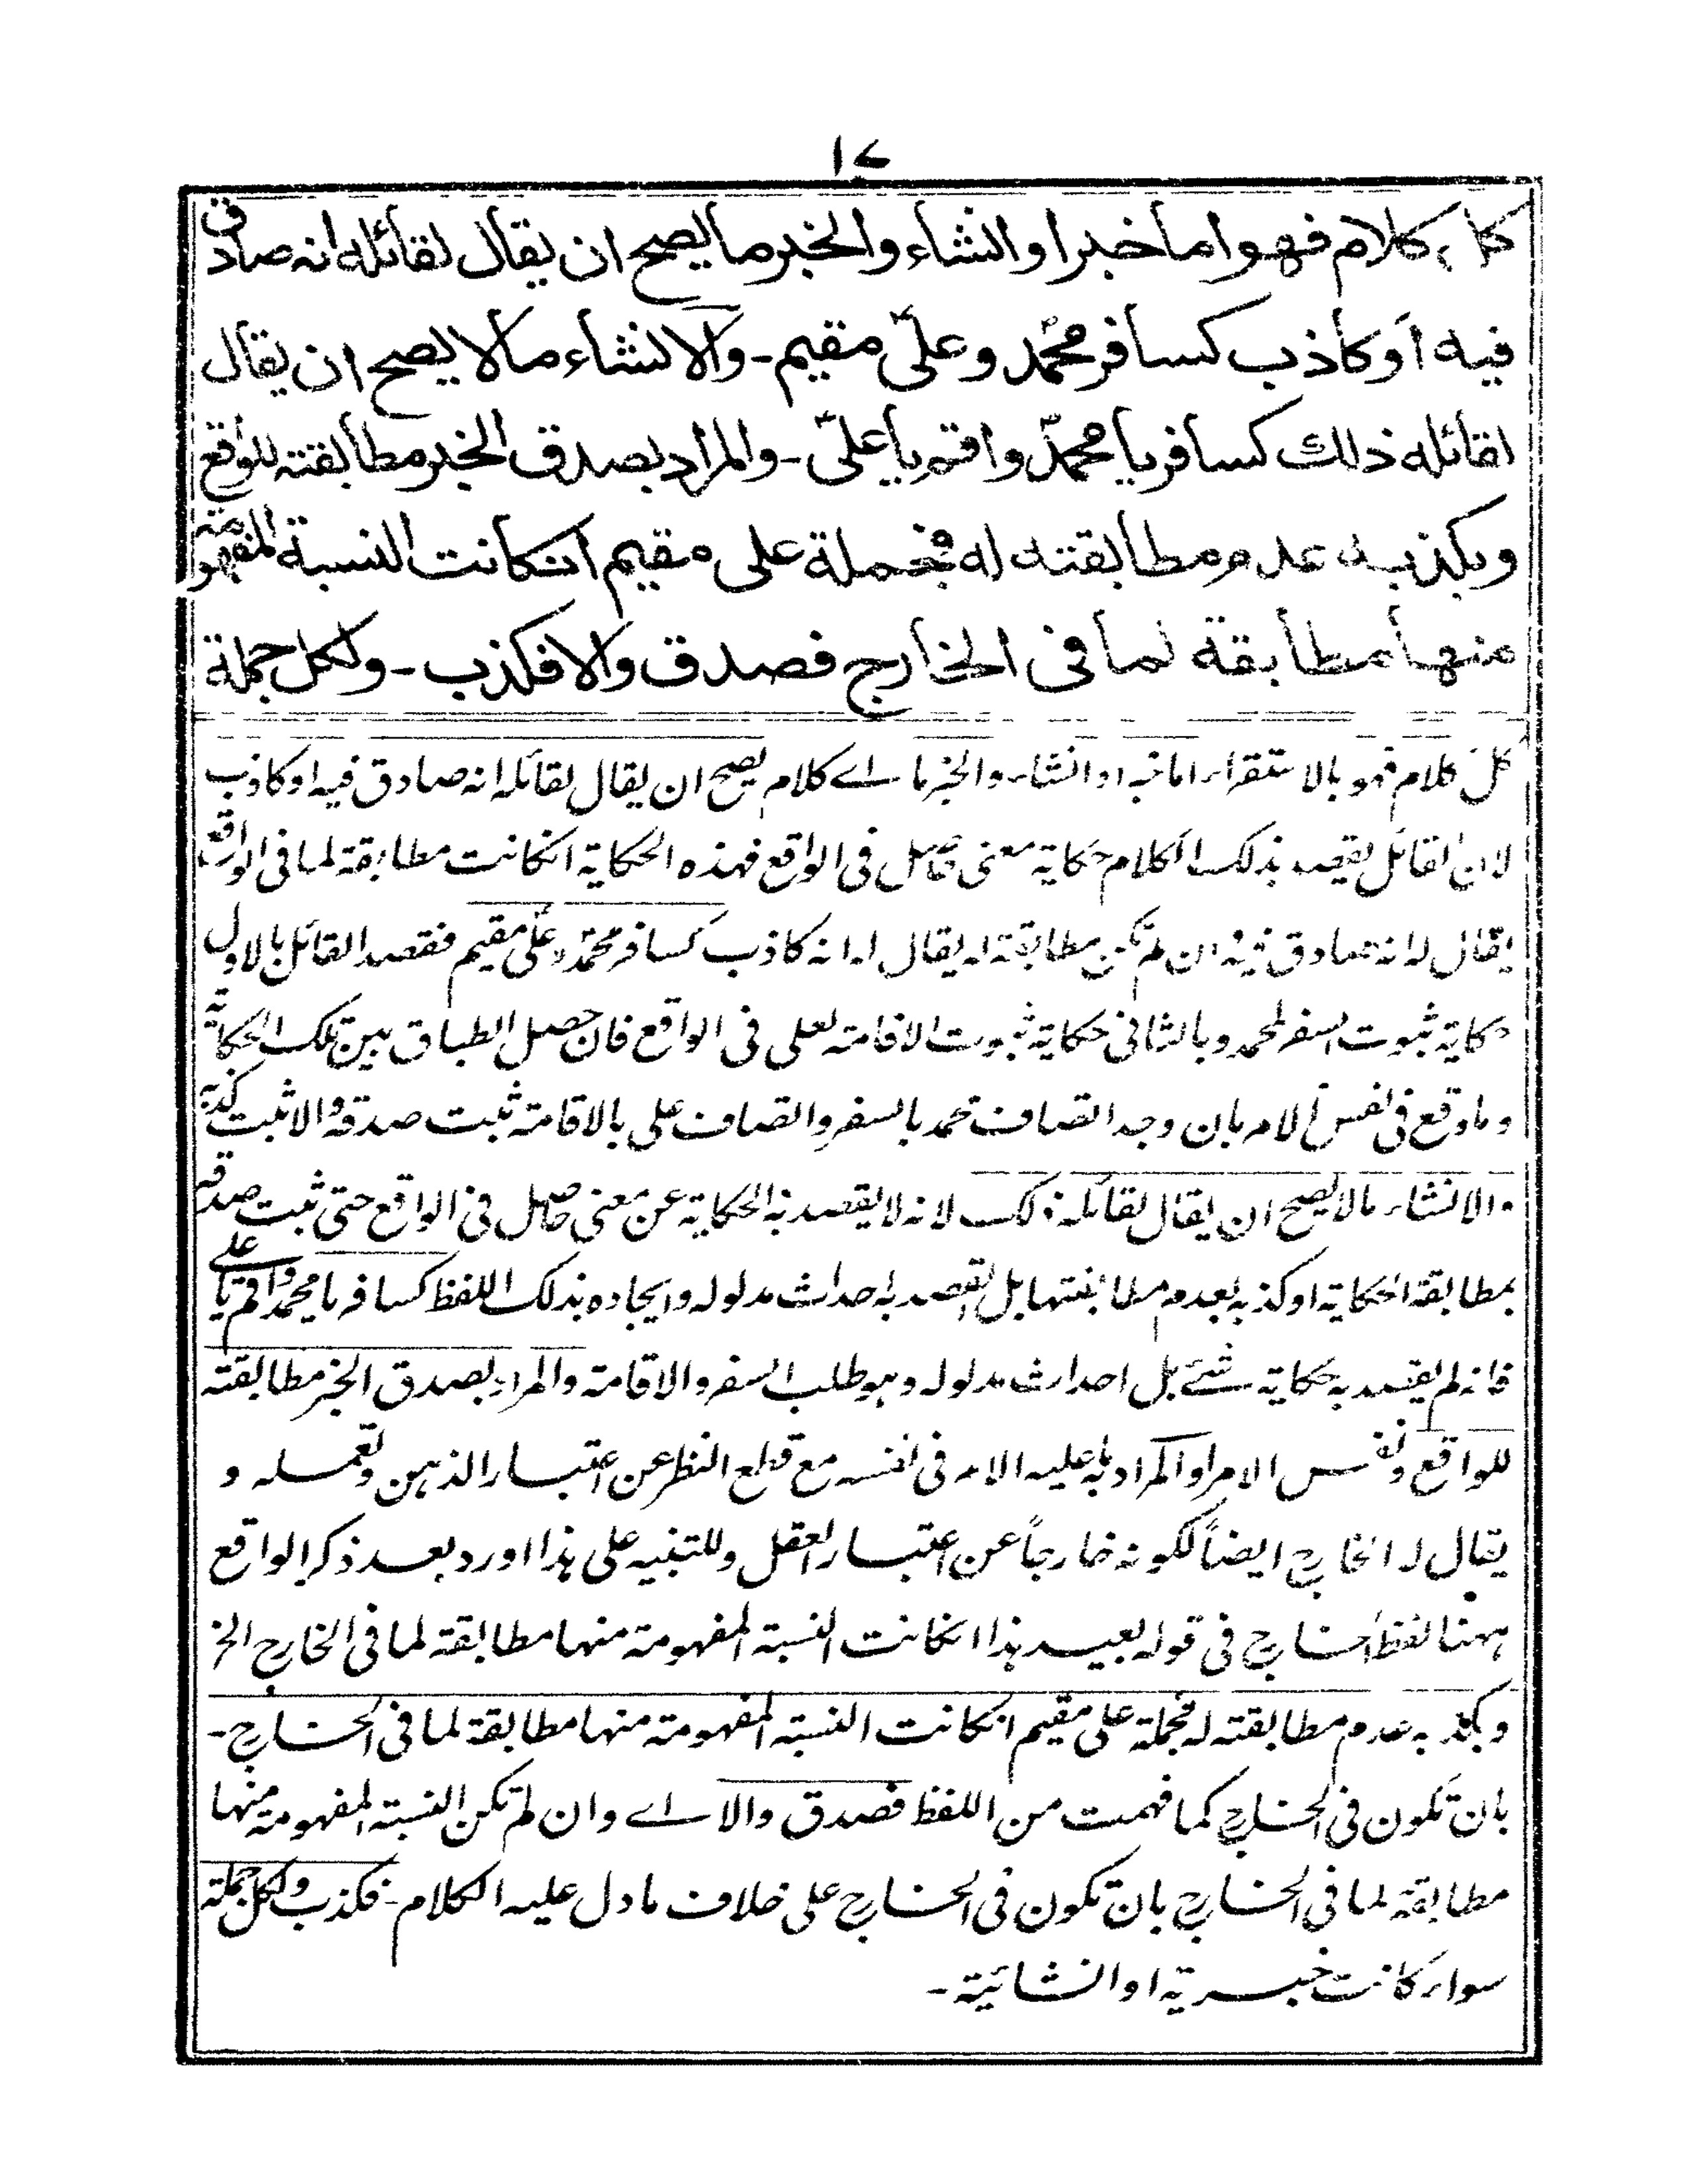 ١٧
كل كلام فهو اما خبر او انشاء والخبر ما يصح ان يقال لقائله انه صادق
فيه او كاذب كسافر محمّد وعلىّ مقيم - والانشاء مالا يصح ان يقال
لقائله ذلك كسافر يا محمّد واقم يا علىّ - والمراد بصدق الخبر مطابقته للواقع
وبكذبه عدم مطابقته له فجملة على مقيم ان كانت النسبة المفهومة
منها مطابقة لما فى الخارج فصدق والا فكذب - ولكل جملة
كل كلام فهو بالاستقراء اما خبر او انشاء والخبر ما اے كلام يصح ان يقال لقائله انه صادق فيه او كاذب
لان القائل يقصد بذلك الكلام حكاية معنى حاصل فى الواقع فهذه الحكاية انكانت مطابقة لما فى الواقع
يقال له انه صادق فيه وان لم تكن مطابقة له يقال له انه كاذب كسافر محمّد وعلىّ مقيم فقصد القائل بالاول
حكاية ثبوت السفر لمحمد وبالثانى حكاية ثبوت الاقامة لعلى فى الواقع فان حصل الطباق بين تلك الحكاية
وما وقع فى نفس الامر بان وجد اتصاف محمد بالسفر واتصاف على بالاقامة ثبت صدقه والا ثبت كذبه
والانشاء مالا يصح ان يقال لقائله ذلك لانه لا يقصد به الحكاية عن معنى حاصل فى الواقع حتى ثبت صدقه
بمطابقة الحكاية او كذبه بعدم مطابقتها بل القصد به احداث مدلوله وايجاده بذلك اللفظ كسافر يا محمد واقم يا على
فانه لم يقصد به حكاية شئے بل احداث مدلوله وهو طلب السفر والاقامة والمراد بصدق الخبر مطابقته
للواقع ونفس الامر او المراد به ما عليه الامر فى نفسه مع قطع النظر عن اعتبار الذهن وتعمله و
يقال له الخارج ايضاً لكونه خارجاً عن اعتبار العقل وللتنبيه على هذا اورد بعد ذكر الواقع
ههنا لفظ الخارج فى قوله بعيد هذا انكانت النسبة المفهومة منها مطابقة لما فى الخارج الخ
وبكذبه عدم مطابقته له فجملة على مقيم انكانت النسبة المفهومة منها مطابقة لما فى الخارج -
بان تكون فى الخارج كما فهمت من اللفظ فصدق والا اے وان لم تكن النسبة المفهومة منها
مطابقة لما فى الخارج بان تكون فى الخارج على خلاف ما دل عليه الكلام - فكذب ولكل جملة
سواء كانت خبرية او انشائية -